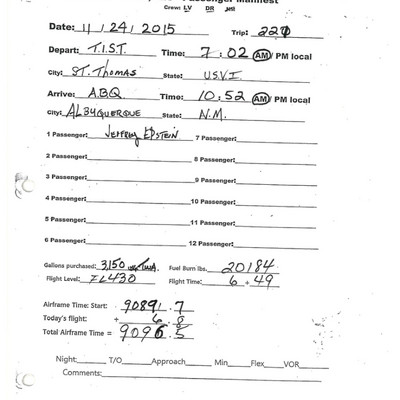 Passenger Manifest
Crew: LV DR
Date: 11/24/2015 Trip: 220
Depart: T.I.S.T. Time: 7:02 AM/PM local
City: ST. THOMAS State: U.S.V.I.
Arrive: A.B.Q. Time: 10:52 AM/PM local
City: ALBUQUERQUE State: N.M.
1 Passenger: Jeffrey Epstein 7 Passenger:
2 Passenger: 8 Passenger:
3 Passenger: 9 Passenger:
4 Passenger: 10 Passenger:
5 Passenger: 11 Passenger:
6 Passenger: 12 Passenger:
Gallons purchased: 3,150 Fuel Burn lbs. 20184
Flight Level: FL430 Flight Time: 6 + 49
Airframe Time: Start: 90891.7
Today's flight: + 6.8
Total Airframe Time = 9096.5
Night: T/O Approach Min Flex VOR
Comments: